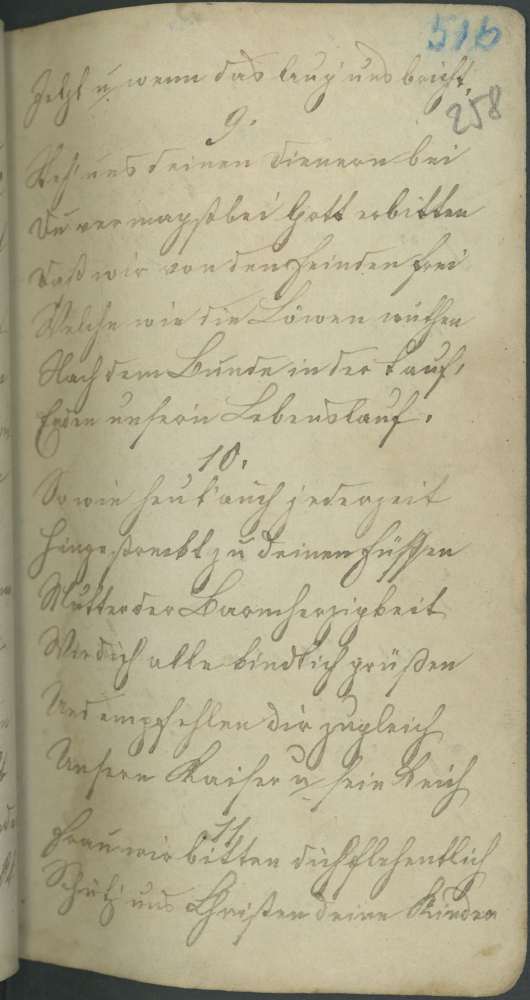 516
258
Jetzt u wenn das Aug' uns bricht.
9.
Steh' uns deinen Dienern bei
Du vermagst bei Gott erbitten
Daß wir von den Feinden frei
Welche wie die Löwen wüthen
Nach dem Bunde in der Tauf,
Enden unsern Lebenslauf.
10.
So wie heut' auch jederzeit
Hingestreckt zu deinen Füssen
Mutter der Barmherzigkeit
Wir dich alle kindlich grüßen
Und empfehlen dir zugleich
Unsern Kaiser u sein Reich
11
Frau wir bitten dich flehentlich
Schütz' uns Christen deine Kinder